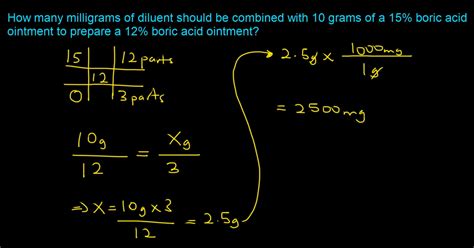 How many milligrams of diluent should be combined with 10 grams of a 15% boric acid
ointment to prepare a 12% boric acid ointment?
15 12 parts
12
0 3 parts
10g/12 = Xg/3
⇒ X = 10g x 3/12 = 2.5g
2.5g x 1000mg/1g
= 2500mg